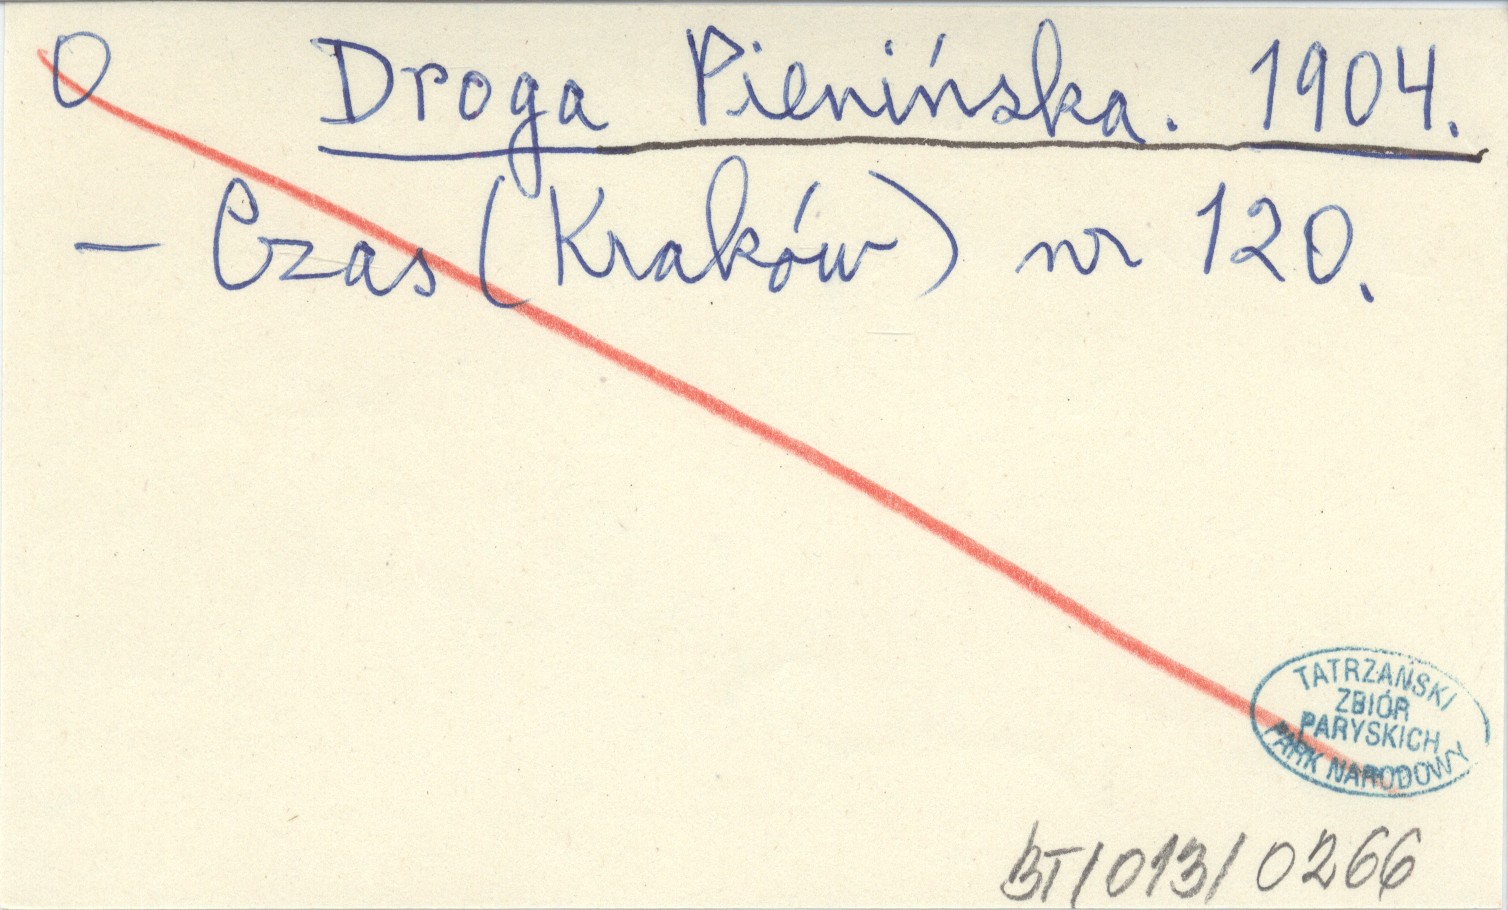 O Droga Pienińska. 1904.
— Czas (Kraków) nr 120.
TATRZAŃSKI
ZBIÓR
PARYSKICH
PARK NARODOWY
BT/013/0266